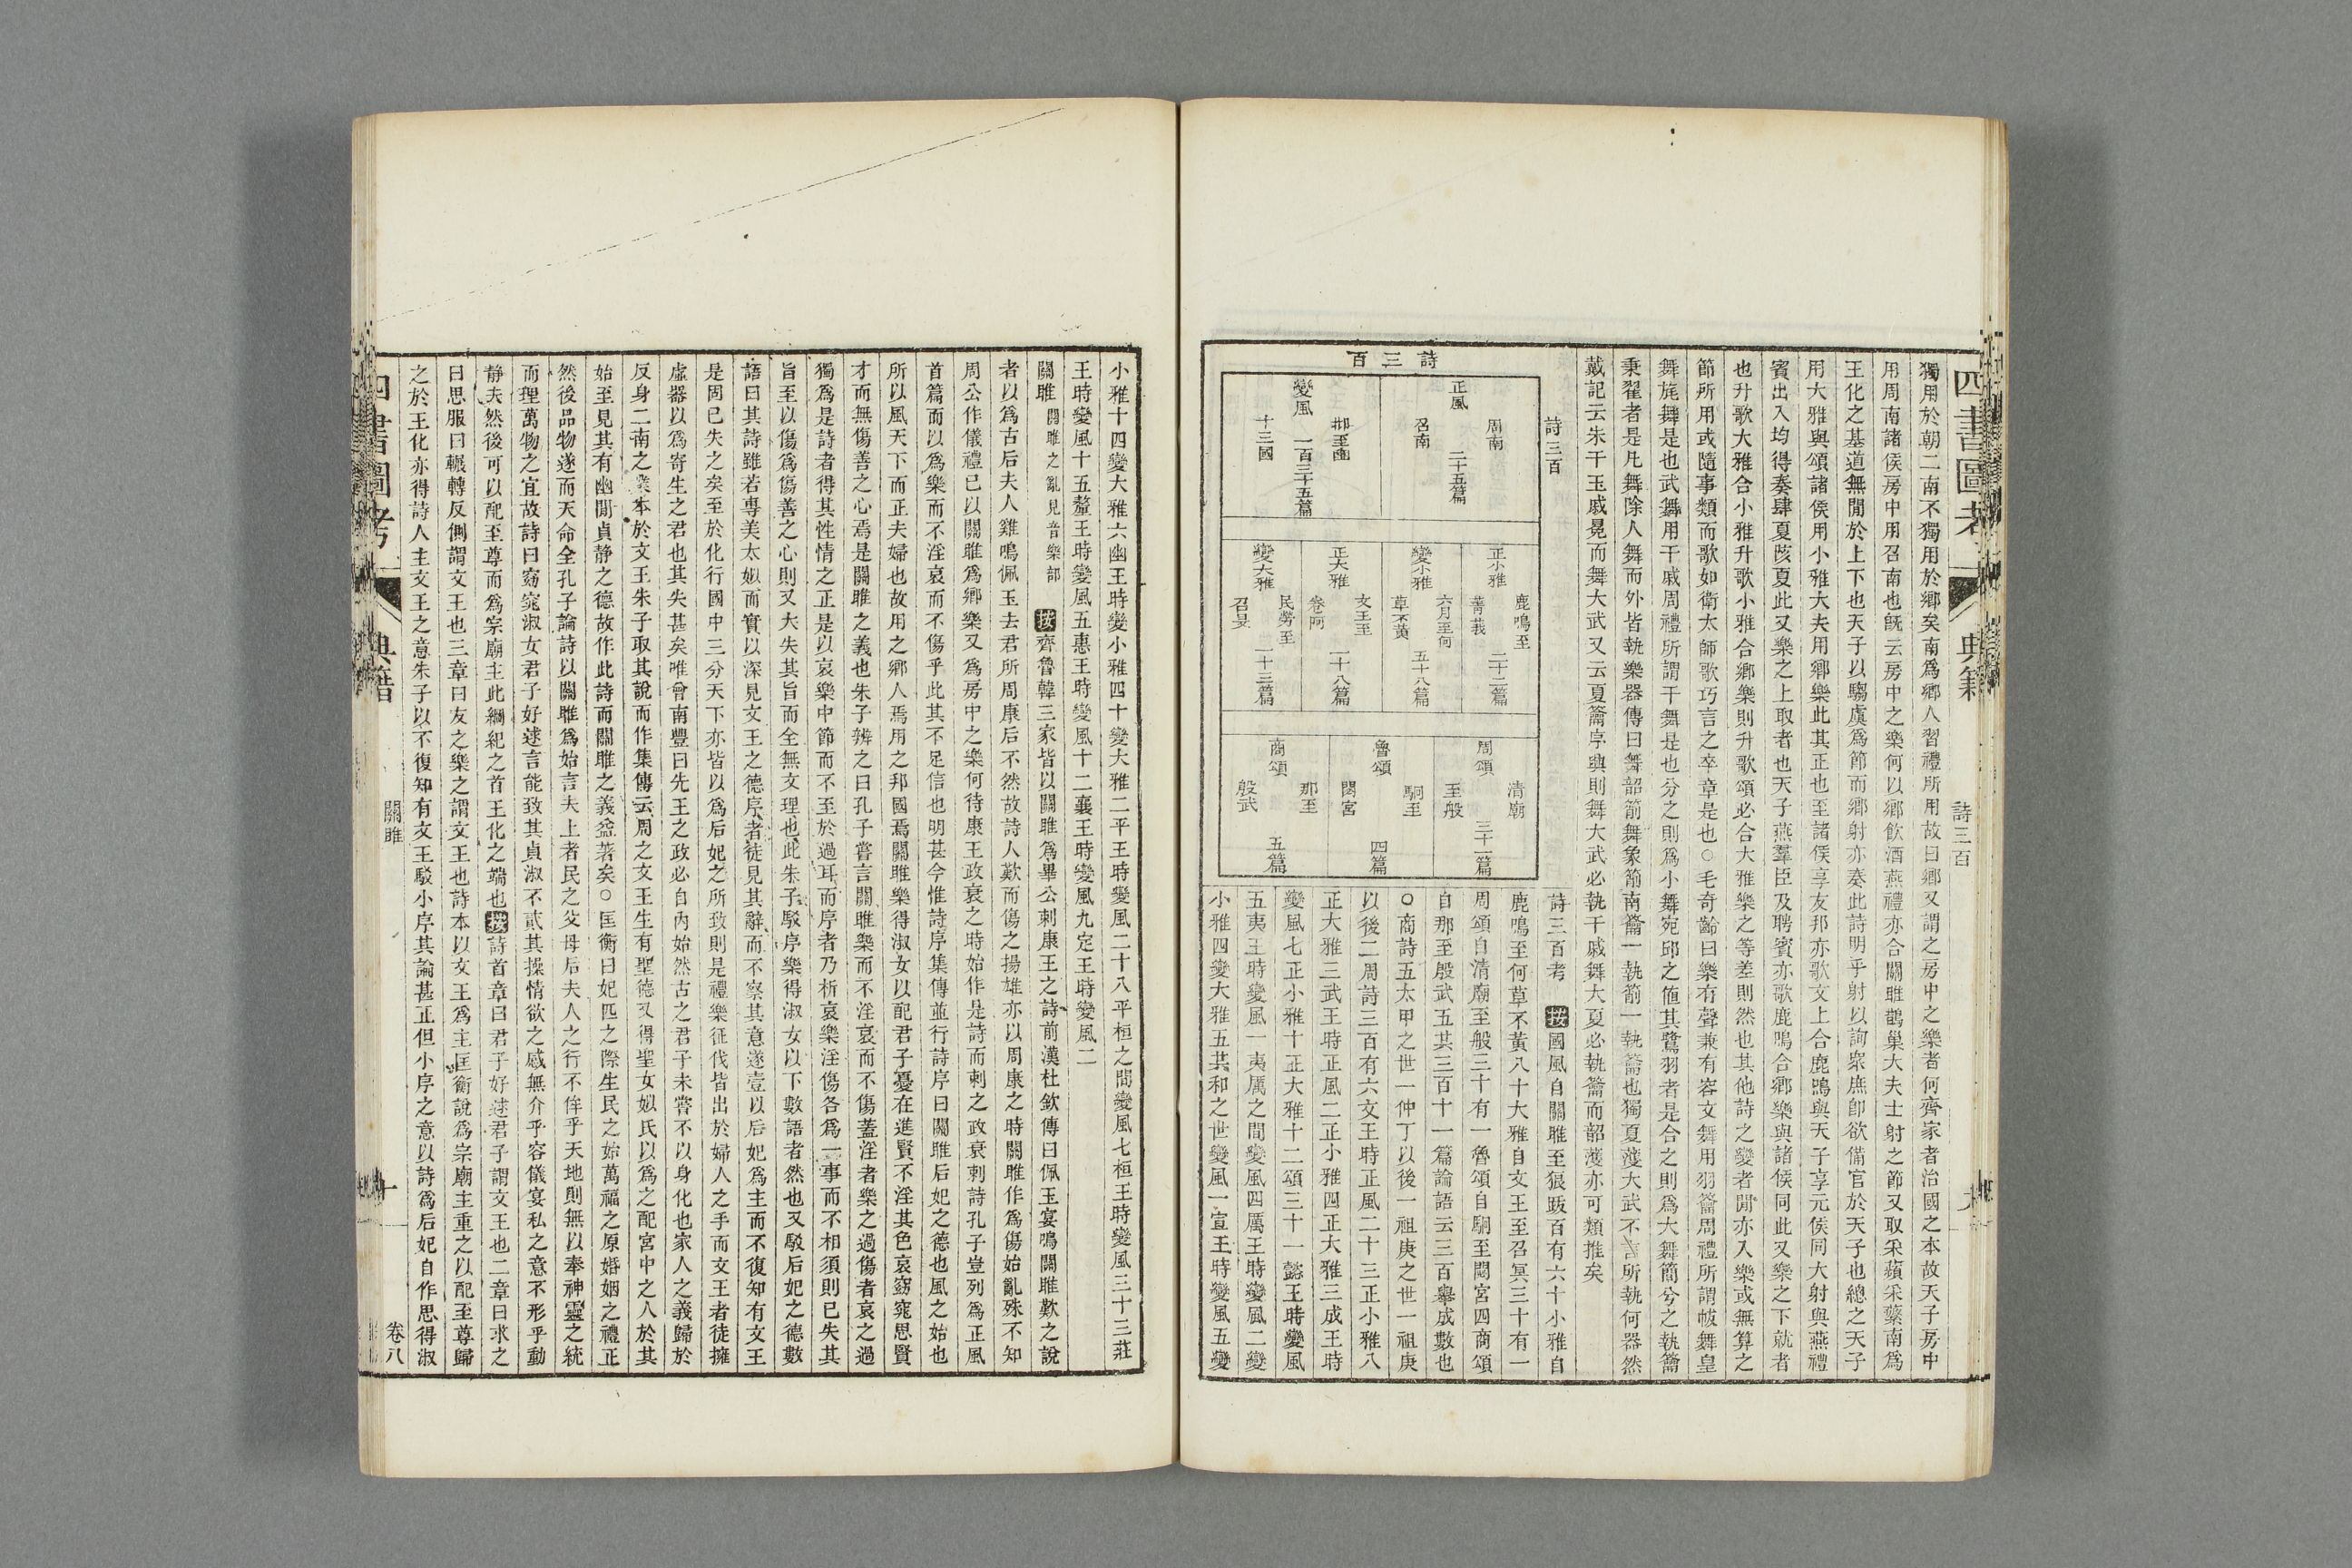 四書圖考
典籍
詩三百
獨用於朝二南不獨用於鄉矣南爲鄉人習禮所用故曰鄉又謂之房中之樂者何齊家者治國之本故天子房中
用周南諸侯房中用召南也旣云房中之樂何以鄉飮酒燕禮亦合關雎鵲巢大夫士射之節又取采蘋采蘩南爲
王化之基道無閒於上下也天子以騶虞爲節而鄉射亦奏此詩明乎射以詢衆庶卽欲備官於天子也總之天子
用大雅與頌諸侯用小雅大夫用鄉樂此其正也至諸侯享友邦亦歌文上合鹿鳴與天子享元侯同大射與燕禮
賓出入均得奏肆夏陔夏此又樂之上取者也天子燕羣臣及聘賓亦歌鹿鳴合鄉樂與諸侯同此又樂之下就者
也升歌大雅合小雅升歌小雅合鄉樂則升歌頌必合大雅樂之等差則然也其他詩之變者閒亦入樂或無算之
節所用或隨事類而歌如衛太師歌巧言之卒章是也○毛奇齡曰樂有聲兼有容文舞用羽籥周禮所謂帗舞皇
舞旄舞是也武舞用干戚周禮所謂干舞是也分之則爲小舞宛邱之值其鷺羽者是合之則爲大舞簡兮之執籥
秉翟者是凡舞除人舞而外皆執樂器傳曰舞韶箾舞象箾南籥一執箾一執籥也獨夏濩大武不言所執何器然
戴記云朱干玉戚冕而舞大武又云夏籥序興則舞大武必執干戚舞大夏必執籥而韶濩亦可類推矣
詩三百
詩三百
正風
周南
召南
二十五篇
變風
邶至豳
十三國
一百三十五篇
正小雅
鹿鳴至
菁莪
二十二篇
變小雅
六月至何
草不黃
五十八篇
正大雅
文王至
卷阿
一十八篇
變大雅
民勞至
召旻
一十三篇
周頌
清廟
至般
三十一篇
魯頌
駉至
閟宮
四篇
商頌
那至
殷武
五篇
詩三百考 按國風自關雎至狼跋百有六十小雅自
鹿鳴至何草不黃八十大雅自文王至召旻三十有一
周頌自清廟至般三十有一魯頌自駉至閟宮四商頌
自那至殷武五其三百十一篇論語云三百舉成數也
○商詩五太甲之世一仲丁以後一祖庚之世一祖庚
以後二周詩三百有六文王時正風二十三正小雅八
正大雅三武王時正風二正小雅四正大雅三成王時
變風七正小雅十正大雅十二頌三十一懿王時變風
五夷王時變風一夷厲之間變風四厲王時變風二變
小雅四變大雅五共和之世變風一宣王時變風五變
小雅十四變大雅六幽王時變小雅四十變大雅二平王時變風二十八平桓之間變風七桓王時變風三十三莊
王時變風十五釐王時變風五惠王時變風十二襄王時變風九定王時變風二
關雎 關雎之亂見音樂部 按齊魯韓三家皆以關雎爲畢公刺康王之詩前漢杜欽傳曰佩玉宴鳴關雎歎之說
者以爲古后夫人雞鳴佩玉去君所周康后不然故詩人歎而傷之揚雄亦以周康之時關雎作爲傷始亂殊不知
周公作儀禮已以關雎爲鄉樂又爲房中之樂何待康王政衰之時始作是詩而刺之政衰刺詩孔子豈列爲正風
首篇而以爲樂而不淫哀而不傷乎此其不足信也明甚今惟詩序集傳並行詩序曰關雎后妃之德也風之始也
所以風天下而正夫婦也故用之鄉人焉用之邦國焉關雎樂得淑女以配君子憂在進賢不淫其色哀窈窕思賢
才而無傷善之心焉是關雎之義也朱子辨之曰孔子嘗言關雎樂而不淫哀而不傷蓋淫者樂之過傷者哀之過
獨爲是詩者得其性情之正是以哀樂中節而不至於過耳而序者乃析哀樂淫傷各爲一事而不相須則已失其
旨至以傷爲傷善之心則又大失其旨而全無文理也此朱子駁序樂得淑女以下數語者然也又駁后妃之德數
語曰其詩雖若專美太姒而實以深見文王之德序者徒見其辭而不察其意遂壹以后妃爲主而不復知有文王
是固已失之矣至於化行國中三分天下亦皆以爲后妃之所致則是禮樂征伐皆出於婦人之手而文王者徒擁
虛器以爲寄生之君也其失甚矣唯曾南豐曰先王之政必自內始然古之君子未嘗不以身化也家人之義歸於
反身二南之業本於文王朱子取其說而作集傳云周之文王生有聖德又得聖女姒氏以爲之配宮中之人於其
始至見其有幽閒貞靜之德故作此詩而關雎之義益著矣○匡衡曰妃匹之際生民之始萬福之原婚姻之禮正
然後品物遂而天命全孔子論詩以關雎爲始言夫上者民之父母后夫人之行不侔乎天地則無以奉神靈之統
而理萬物之宜故詩曰窈窕淑女君子好逑言能致其貞淑不貳其操情欲之感無介乎容儀宴私之意不形乎動
靜夫然後可以配至尊而爲宗廟主此綱紀之首王化之端也按詩首章曰君子好逑君子謂文王也二章曰求之
曰思服曰輾轉反側謂文王也三章曰友之樂之謂文王也詩本以文王爲主匡衡說爲宗廟主重之以配至尊歸
之於王化亦得詩人主文王之意朱子以不復知有文王駁小序其論甚正但小序之意以詩爲后妃自作思得淑
四書圖考
典籍
關雎
十
卷八